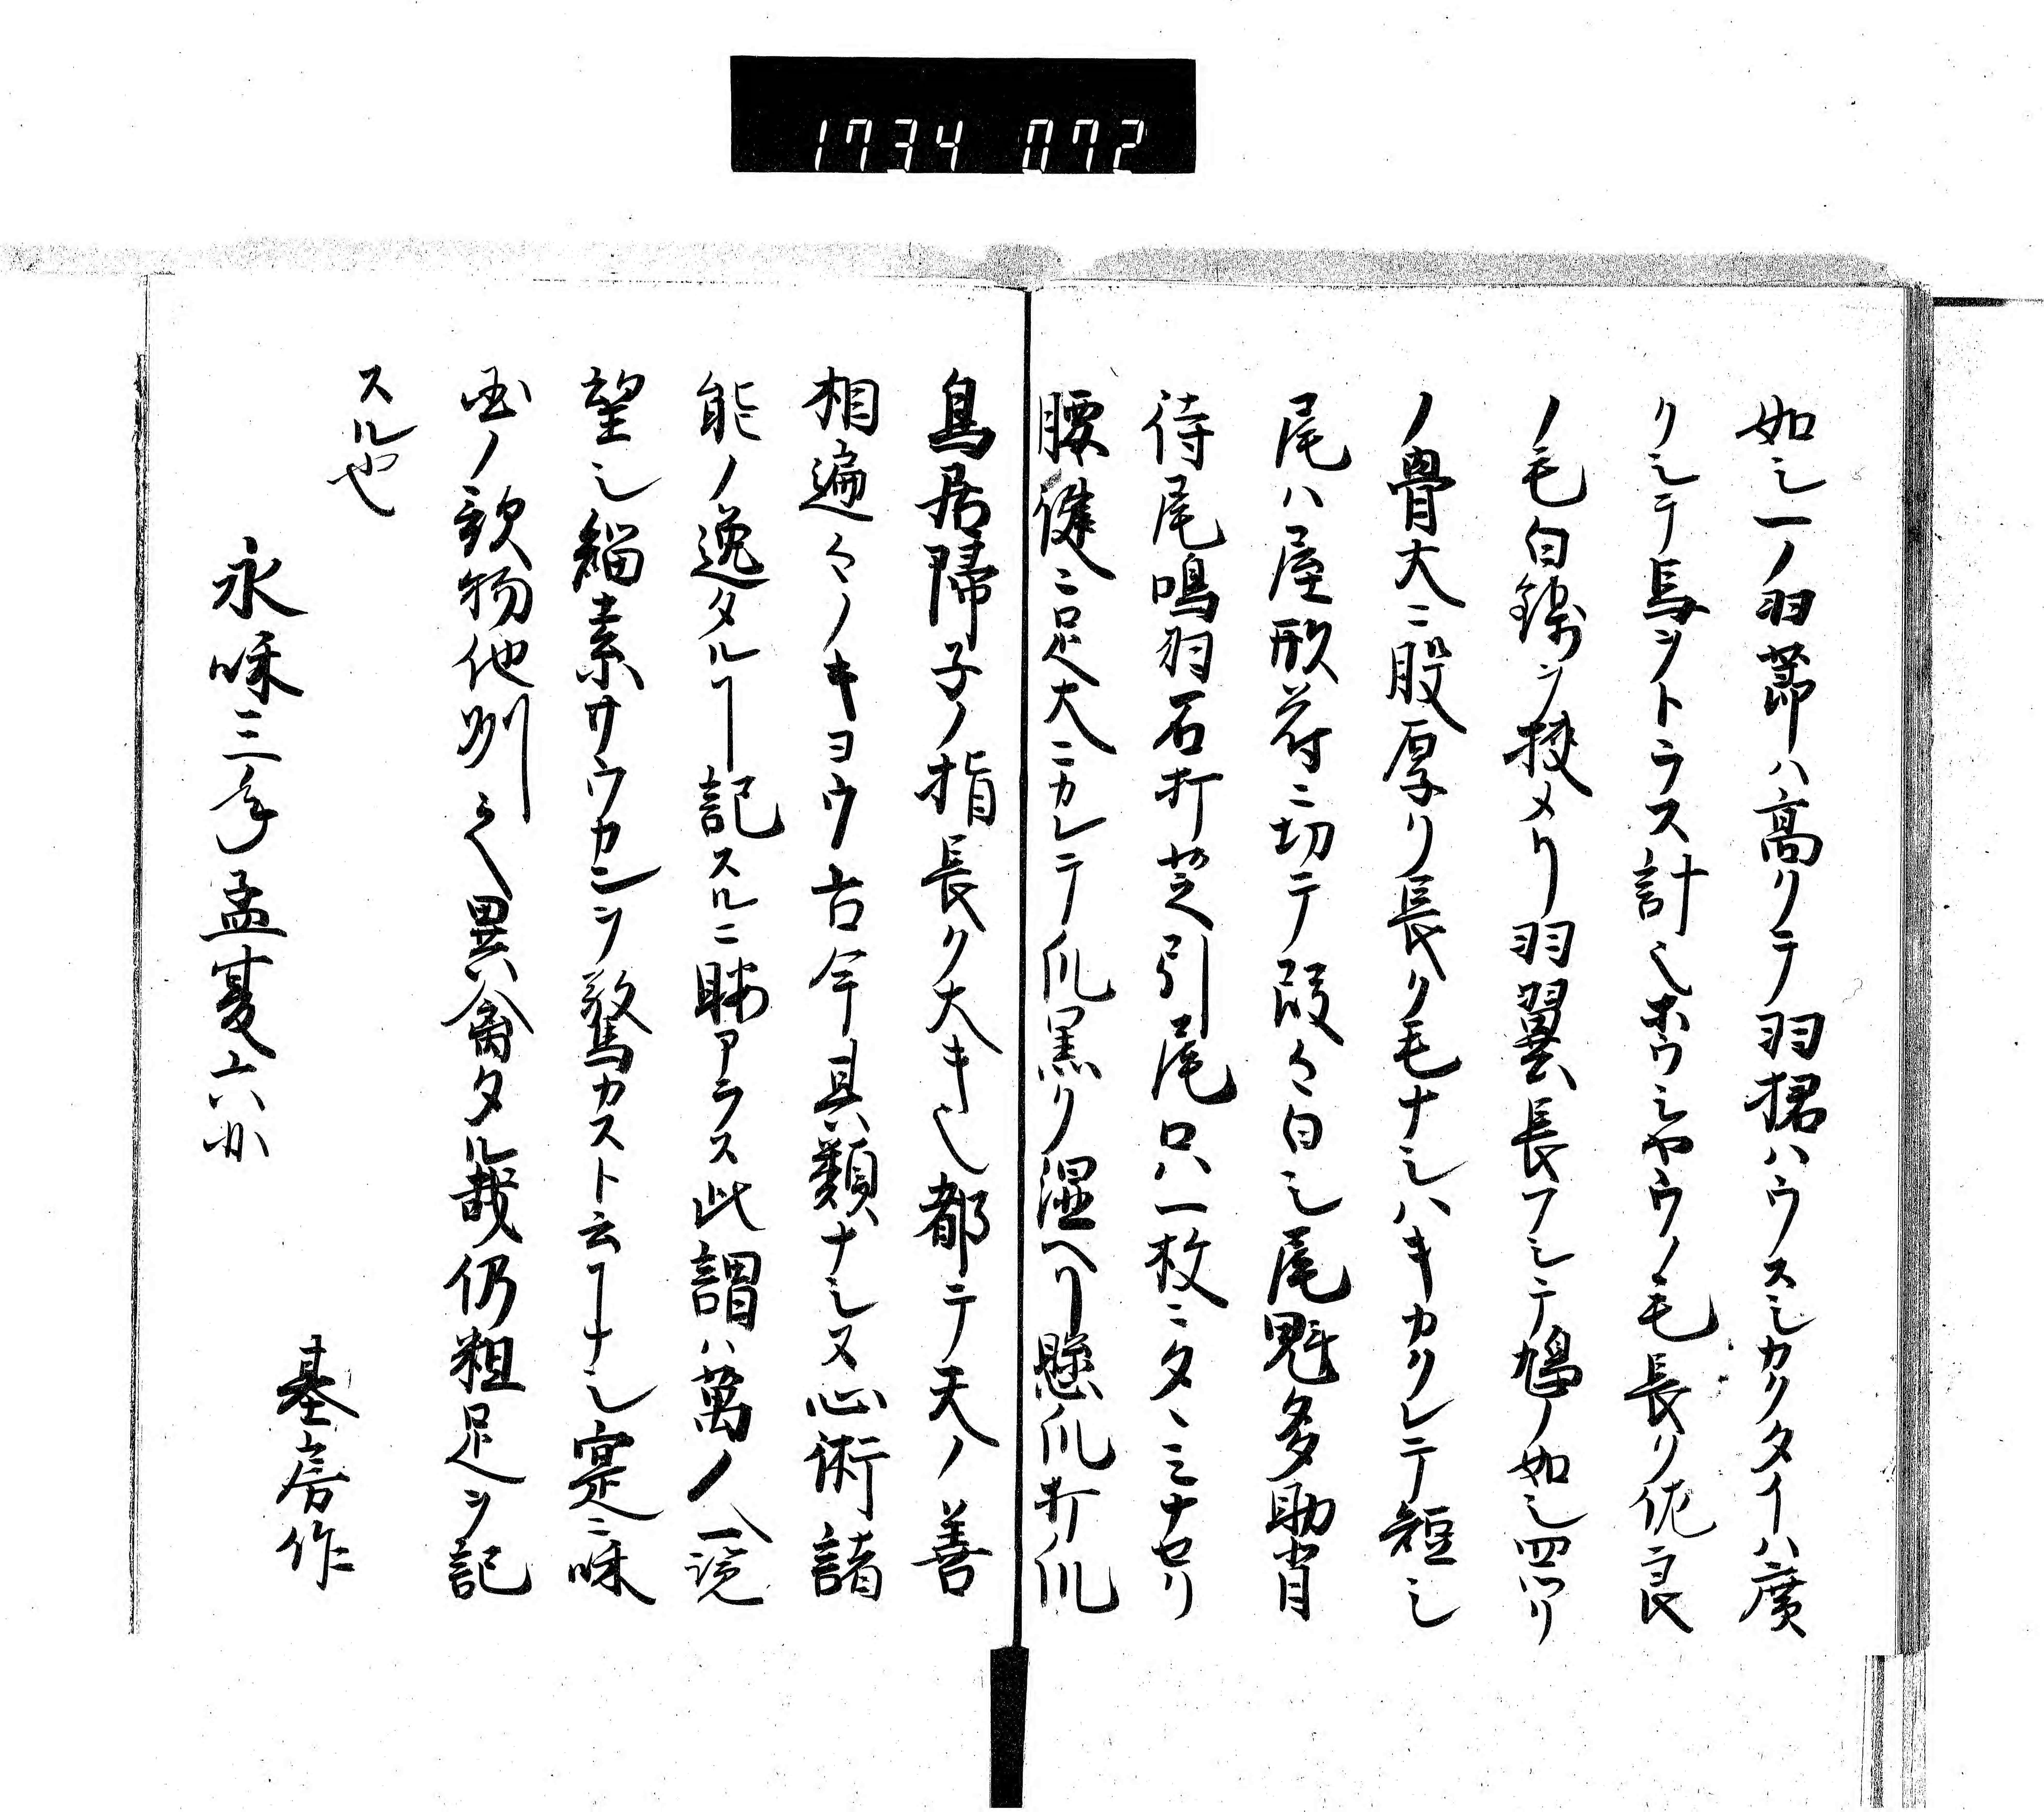 1734 072
如シ一ノ羽節ハ高クテ羽裙ハウスシカクタイハ廣
クシテ馬ヲトラス計也ホウシヤウノ毛長ク佐良
ノ毛白鎬ヲ挟メリ羽翼長フシテ鳩ノ如シ四ツリ
ノ骨大ニ股厚リ長ク毛ナシハキカクレテ短シ
尾ハ屋形符ニ切テ段々白シ尾魁多助肖
待尾鳴羽石打芝引尾只一枚ニタヽミナセリ
腰健ニ足大ニカレテ爪黒ク湿ヘリ懸爪打爪
鳥居帰子ノ指長ク大キ也都テ天ノ善
相遍々ノキヨウ古今具類ナシ又心術諸
能ノ逸タルヿ記スルニ暇アラス此謂ハ萬ノ人一覧
望シ緇素サウカンヲ驚カスト云ヿナシ寔ニ味
国ノ欽物他州之異禽タル哉仍粗足ヲ記
スル也
永味三年孟夏六介
基房作